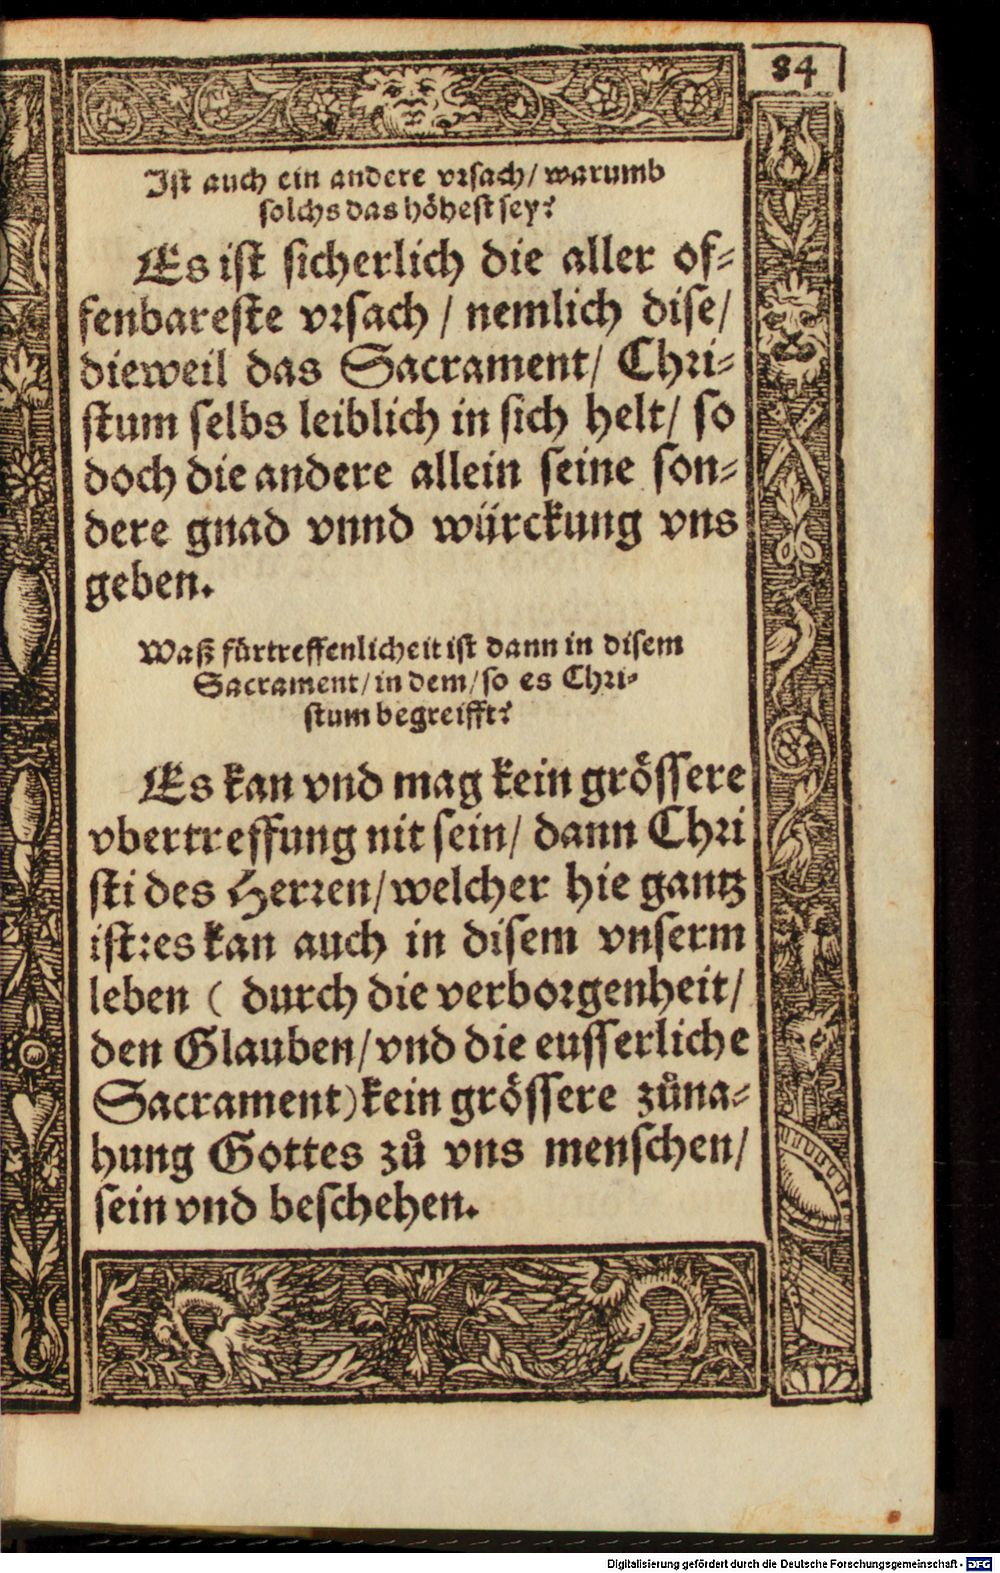 84
Ist auch ein andere vrsach/ warumb
solchs das höhest sey?
Es ist sicherlich die aller of-
fenbareste vrsach / nemlich dise/
dieweil das Sacrament/ Chri-
stum selbs leiblich in sich helt/ so
doch die andere allein seine son-
dere gnad vnnd würckung vns
geben.
Waß fürtreffenlicheit ist dann in disem
Sacrament/ in dem/ so es Chri-
stum begreifft?
Es kan vnd mag kein grössere
vbertreffung nit sein/ dann Chri
sti des Herren/ welcher hie gantz
ist: es kan auch in disem vnserm
leben ( durch die verborgenheit/
den Glauben/ vnd die eusserliche
Sacrament) kein grössere zůna-
hung Gottes zů vns menschen/
sein vnd beschehen.
Digitalisierung gefördert durch die Deutsche Forschungsgemeinschaft - DFG